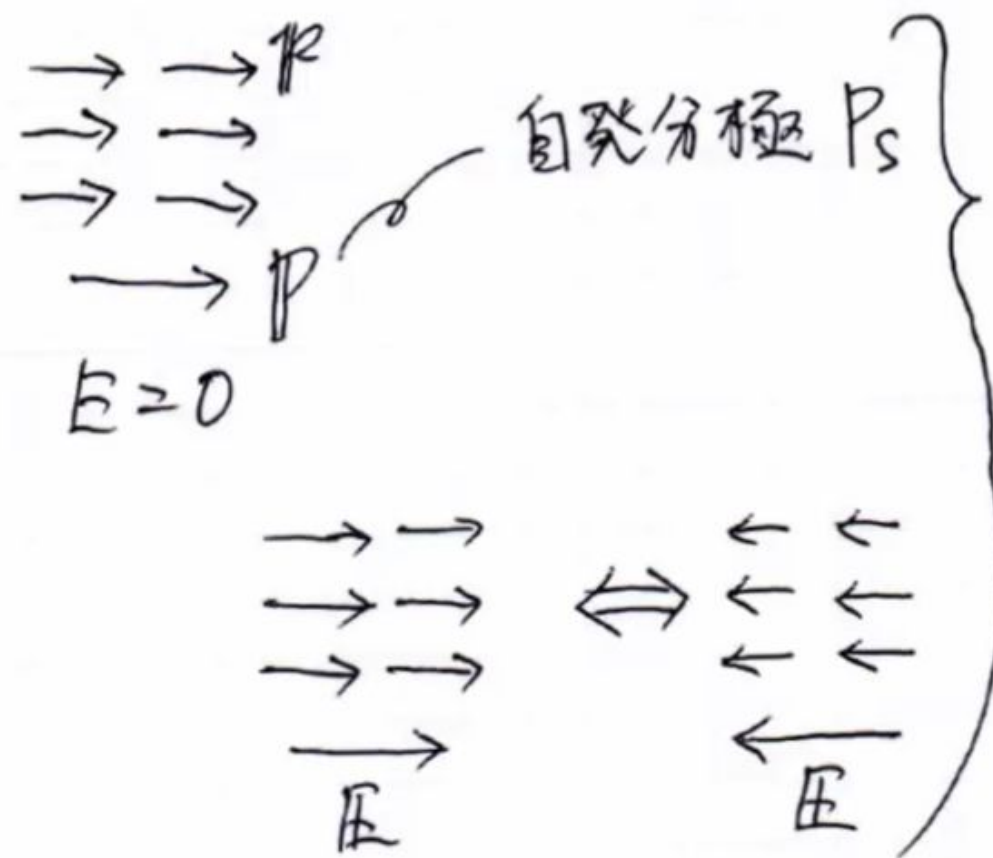 p
自発分極 Ps
P
E = 0
E
E